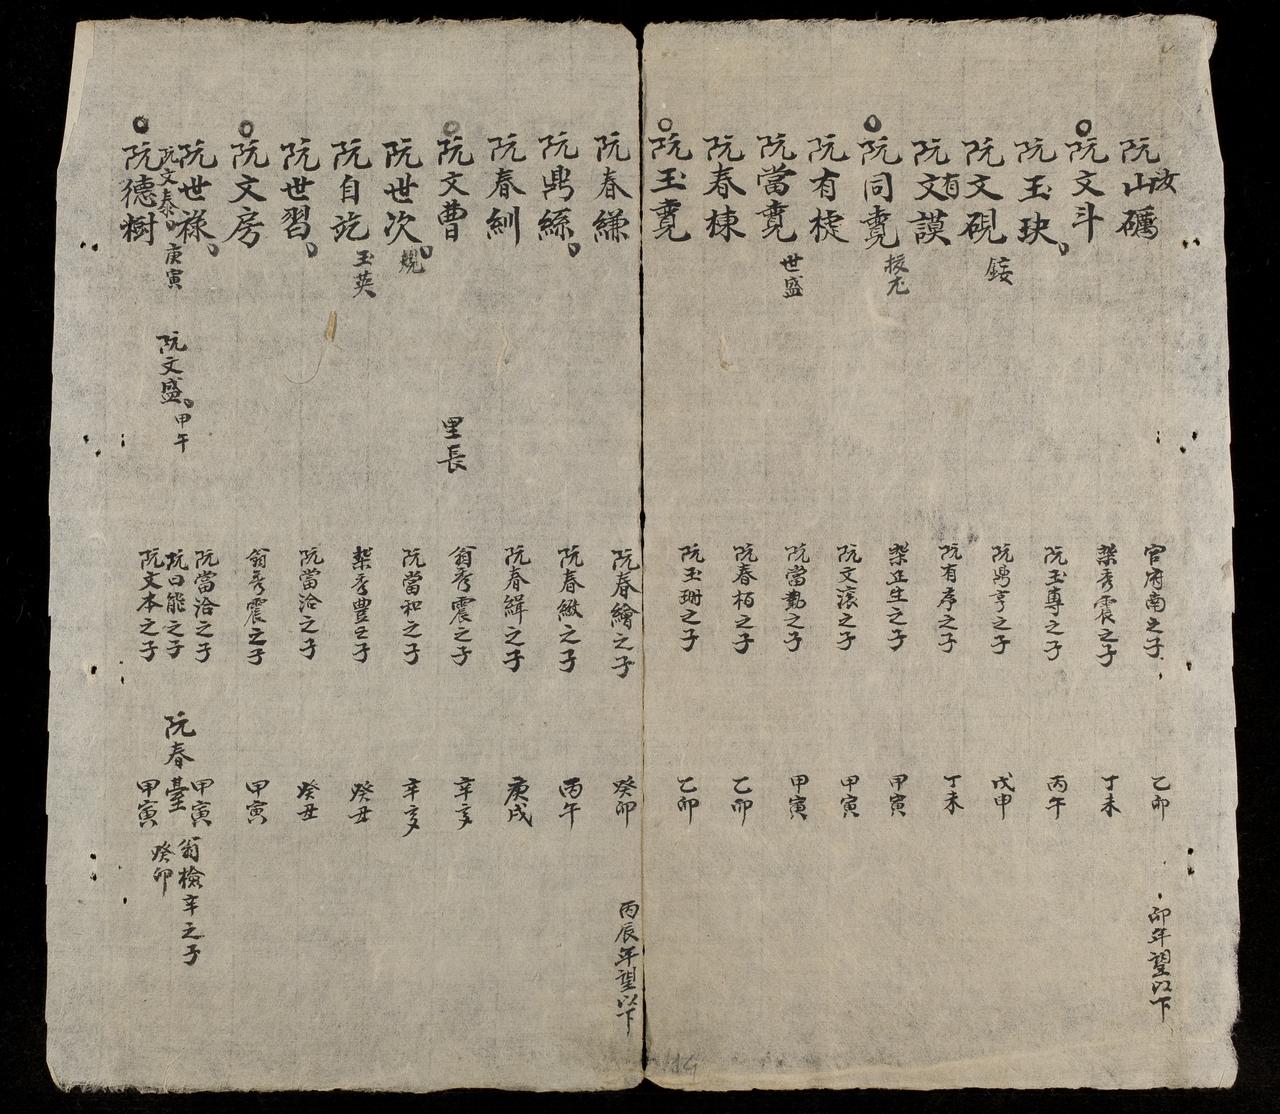 阮山礪 汝 官府南之子 乙卯 卯年望以下
阮文斗 黎秀震之子 丁未
阮玉玦 阮玉專之子 丙午
阮文硯 銨 阮鼎亨之子 戊申
阮文謨 有 阮有序之子 丁未
阮同 甲寅
阮有 阮文滾之子 甲寅
阮當 世盛 阮當勤之子 甲寅
阮春棟 阮春栢之子 乙卯
阮玉 阮玉珊之子 乙卯
阮春縑 阮春繪之子 癸卯 丙辰年望以下
阮鼎絲 阮春緻之子 丙午
阮春紃 阮春緝之子 庚戌
阮文曹 里長 翁秀震之子 辛亥
阮世次 規 阮當和之子 辛亥
阮自訖 玉英 黎秀豊之子 癸丑
阮世習 阮當洽之子 癸丑
阮文房 翁秀震之子 甲寅
阮世祿 阮當洽之子 甲寅
阮文泰 庚寅 阮文盛 甲午 阮曰能之子 阮春臺 翁檢辛之子 癸卯
阮德樹 阮文本之子 甲寅